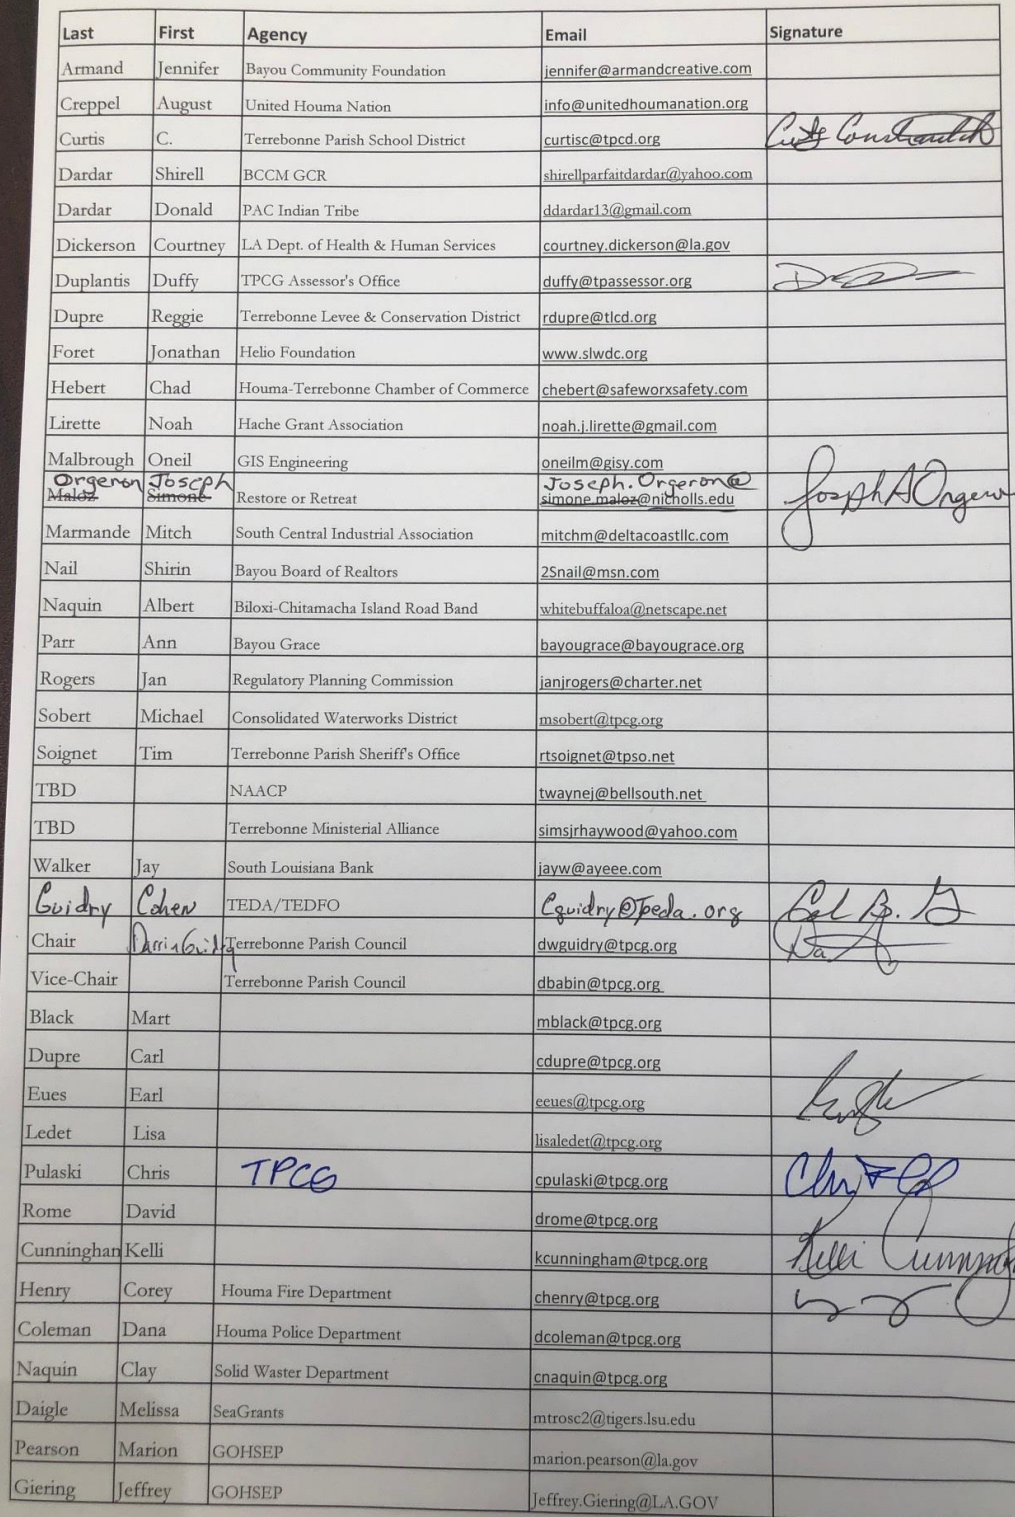 Last First Agency Email Signature
Armand Jennifer Bayou Community Foundation jennifer@armandcreative.com
Creppel August United Houma Nation info@unitedhoumanation.org
Curtis C. Terrebonne Parish School District curtisc@tpcd.org
Dardar Shirell BCCM GCR shirellparfaitdardar@yahoo.com
Dardar Donald PAC Indian Tribe ddardar13@gmail.com
Dickerson Courtney LA Dept. of Health & Human Services courtney.dickerson@la.gov
Duplantis Duffy TPCG Assessor's Office duffy@tpassessor.org
Dupre Reggie Terrebonne Levee & Conservation District rdupre@tlcd.org
Foret Jonathan Helio Foundation www.slwdc.org
Hebert Chad Houma-Terrebonne Chamber of Commerce chebert@safeworxsafety.com
Lirette Noah Hache Grant Association noah.j.lirette@gmail.com
Malbrough Oneil GIS Engineering oneilm@gisy.com
Orgeron Joseph Joseph.Orgeron@
Maloz Simone Restore or Retreat simone.maloz@nicholls.edu Joseph A Orgeron
Marmande Mitch South Central Industrial Association mitchm@deltacoastllc.com
Nail Shirin Bayou Board of Realtors 2Snail@msn.com
Naquin Albert Biloxi-Chitamacha Island Road Band whitebuffaloa@netscape.net
Parr Ann Bayou Grace bayougrace@bayougrace.org
Rogers Jan Regulatory Planning Commission janjrogers@charter.net
Sobert Michael Consolidated Waterworks District msobert@tpcg.org
Soignet Tim Terrebonne Parish Sheriff's Office rtsoignet@tpso.net
TBD NAACP twaynej@bellsouth.net
TBD Terrebonne Ministerial Alliance simsjrhaywood@yahoo.com
Walker Jay South Louisiana Bank jayw@ayeee.com
Guidry Cohen TEDA/TEDFO Cguidry@Tpeda.org
Chair Darrin Guidry Terrebonne Parish Council dwguidry@tpcg.org
Vice-Chair Terrebonne Parish Council dbabin@tpcg.org
Black Mart mblack@tpcg.org
Dupre Carl cdupre@tpcg.org
Eues Earl eeues@tpcg.org
Ledet Lisa lisaledet@tpcg.org
Pulaski Chris TPCG cpulaski@tpcg.org
Rome David drome@tpcg.org
Cunninghan Kelli kcunningham@tpcg.org Kelli Cunningh
Henry Corey Houma Fire Department chenry@tpcg.org
Coleman Dana Houma Police Department dcoleman@tpcg.org
Naquin Clay Solid Waster Department cnaquin@tpcg.org
Daigle Melissa SeaGrants mtrosc2@tigers.lsu.edu
Pearson Marion GOHSEP marion.pearson@la.gov
Giering Jeffrey GOHSEP Jeffrey.Giering@LA.GOV